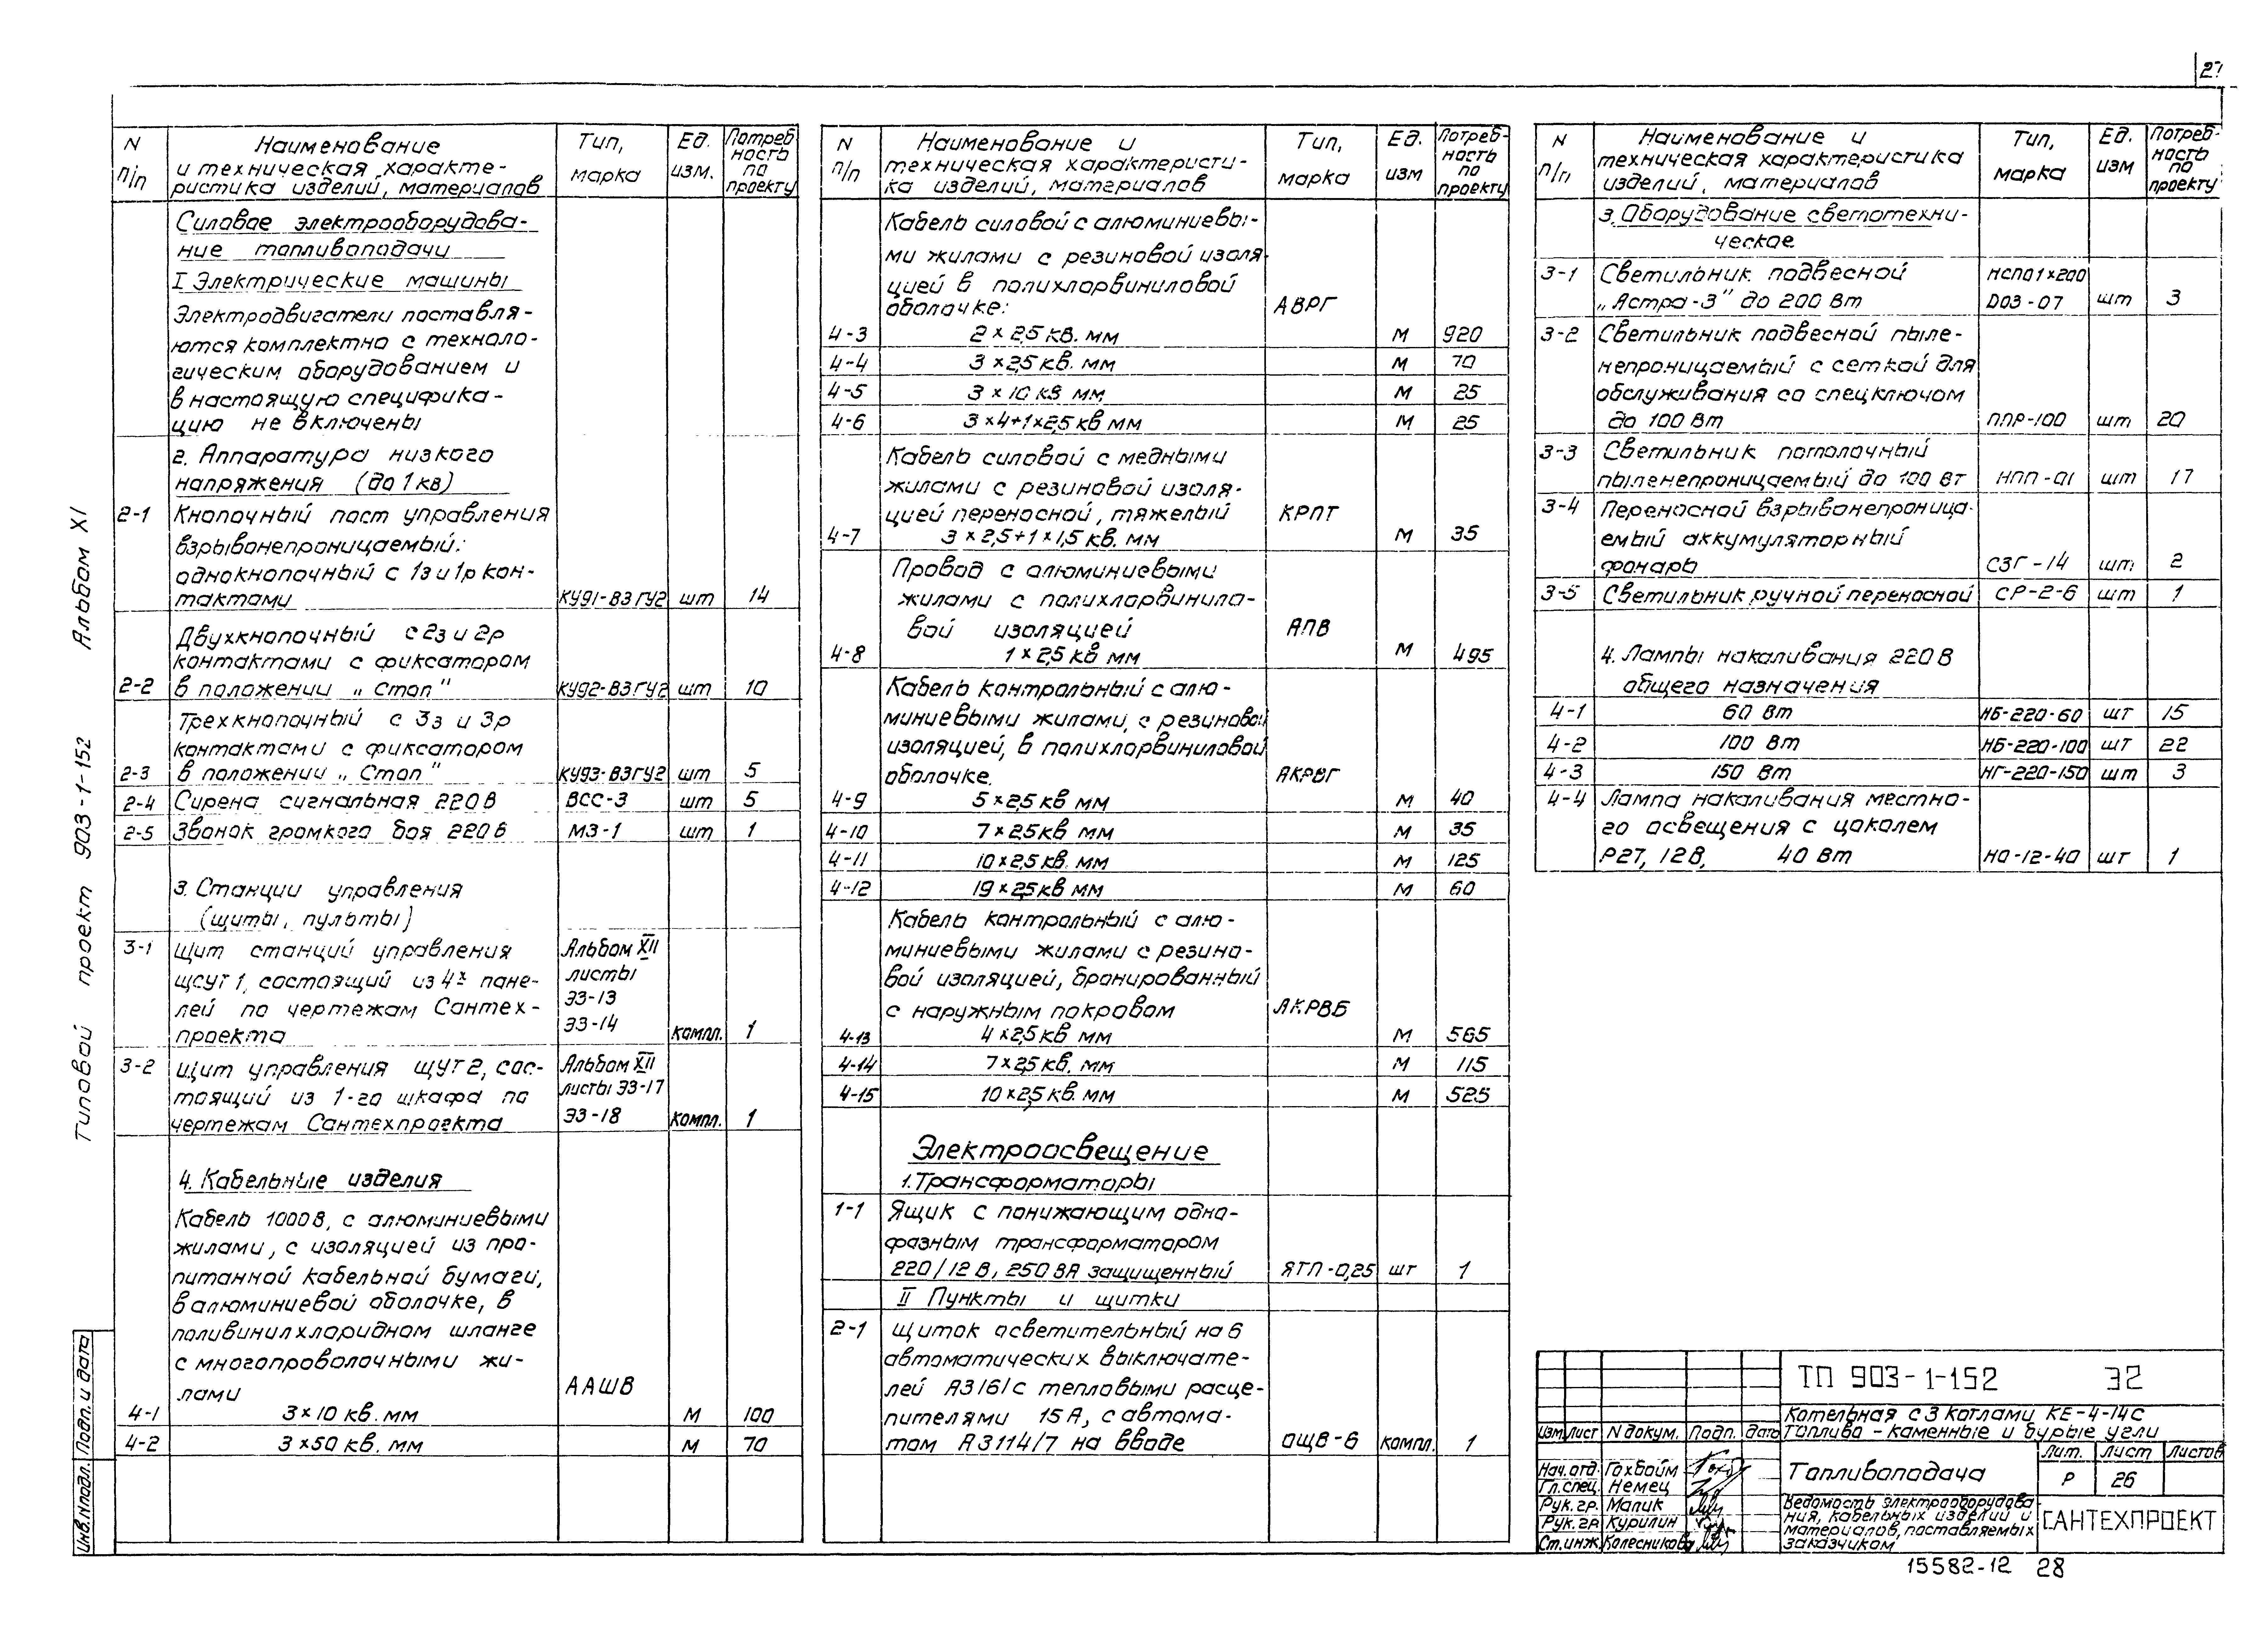 27
Типовой проект 903-1-152 Альбом XI
Инв.№подл. Подп. и дата
N п/п | Наименование и техническая характеристика изделий, материалов | Тип, марка | Ед. изм. | Потребность по проекту
Силовое электрооборудова-
ние топливоподачи
I Электрические машины
Электродвигатели поставля-
ются комплектно с техноло-
гическим оборудованием и
в настоящую специфика-
цию не включены
2. Аппаратура низкого
напряжения (до 1 кв)
2-1 Кнопочный пост управления
взрывонепроницаемый:
однокнопочный с 1з и 1р кон-
тактами КУ91-ВЗГУ2 шт 14
Двухкнопочный с 2з и 2р
контактами с фиксатором
2-2 в положении „Стоп" КУ92-ВЗГУ2 шт 10
Трехкнопочный с 3з и 3р
контактами с фиксатором
2-3 в положении „Стоп" КУ93-ВЗГУ2 шт 5
2-4 Сирена сигнальная 220 В ВСС-3 шт 5
2-5 Звонок громкого боя 220 В МЗ-1 шт 1
3. Станции управления
(щиты, пульты)
3-1 Щит станций управления Альбом XII
ЩСУТ1, состоящий из 4х пане- листы
лей по чертежам Сантех- ЭЗ-13
проекта ЭЗ-14 компл. 1
3-2 Щит управления ЩУТ2, сос- Альбом XII
тоящий из 1-го шкафа по листы ЭЗ-17
чертежам Сантехпроекта ЭЗ-18 компл. 1
4. Кабельные изделия
Кабель 1000 В, с алюминиевыми
жилами, с изоляцией из про-
питанной кабельной бумаги,
в алюминиевой оболочке, в
поливинилхлоридном шланге
с многопроволочными жи-
лами ААШВ
4-1 3×10 кв. мм М 100
4-2 3×50 кв. мм М 70
N п/п | Наименование и техническая характеристика изделий, материалов | Тип, марка | Ед. изм | Потребность по проекту
Кабель силовой с алюминиевы-
ми жилами с резиновой изоля-
цией в полихлорвиниловой
оболочке: АВРГ
4-3 2×2,5 кв. мм М 920
4-4 3×2,5 кв. мм М 70
4-5 3×10 кв мм М 25
4-6 3×4+1×2,5 кв мм М 25
Кабель силовой с медными
жилами с резиновой изоля-
цией переносной, тяжелый КРПТ
4-7 3×2,5+1×1,5 кв. мм М 35
Провод с алюминиевыми
жилами с полихлорвинило-
вой изоляцией АПВ
4-8 1×2,5 кв мм М 495
Кабель контрольный с алю-
миниевыми жилами, с резиновой
изоляцией, в полихлорвиниловой
оболочке. АКРВГ
4-9 5×2,5 кв мм М 40
4-10 7×2,5 кв мм М 35
4-11 10×2,5 кв. мм М 125
4-12 19×2,5 кв мм М 60
Кабель контрольный с алю-
миниевыми жилами с резино-
вой изоляцией, бронированный
с наружным покровом АКРВБ
4-13 4×2,5 кв мм М 565
4-14 7×2,5 кв. мм М 115
4-15 10×2,5 кв. мм М 525
Электроосвещение
1. Трансформаторы
1-1 Ящик с понижающим одно-
фазным трансформатором
220/12 В, 250 ВА защищенный ЯТП-0,25 шт 1
II Пункты и щитки
2-1 Щиток осветительный на 6
автоматических выключате-
лей А3161 с тепловыми расце-
пителями 15А, с автома-
том А3114/7 на вводе ОЩВ-6 компл. 1
N п/п | Наименование и техническая характеристика изделий, материалов | Тип, марка | Ед. изм | Потребность по проекту
3. Оборудование светотехни-
ческое
3-1 Светильник подвесной НСП01×200
„Астра-3" до 200 Вт D03-07 шт 3
3-2 Светильник подвесной пыле-
непроницаемый с сеткой для
обслуживания со спецключом
до 100 Вт ППР-100 шт 20
3-3 Светильник потолочный
пыленепроницаемый до 100 Вт НПП-01 шт 17
3-4 Переносной взрывонепроница-
емый аккумуляторный
фонарь СЗГ-14 шт 2
3-5 Светильник ручной переносной СР-2-6 шт 1
4. Лампы накаливания 220 В
общего назначения
4-1 60 Вт НБ-220-60 шт 15
4-2 100 Вт НБ-220-100 шт 22
4-3 150 Вт НГ-220-150 шт 3
4-4 Лампа накаливания местно-
го освещения с цоколем
Р27, 12 В, 40 Вт НО-12-40 шт 1
ТП 903-1-152 Э2
Котельная с 3 котлами КЕ-4-14С
Топливо - каменные и бурые угли
Изм Лист N докум. Подп. дата
Лит. Лист Листов
Р 26
Топливоподача
Нач. отд. Гохбойм
Гл. спец. Немец
Рук. гр. Малик
Рук. гр Курилин
Ст. инж. Колесникова
Ведомость электрооборудова-
ния, кабельных изделий и
материалов, поставляемых
заказчиком
САНТЕХПРОЕКТ
15582-12 28